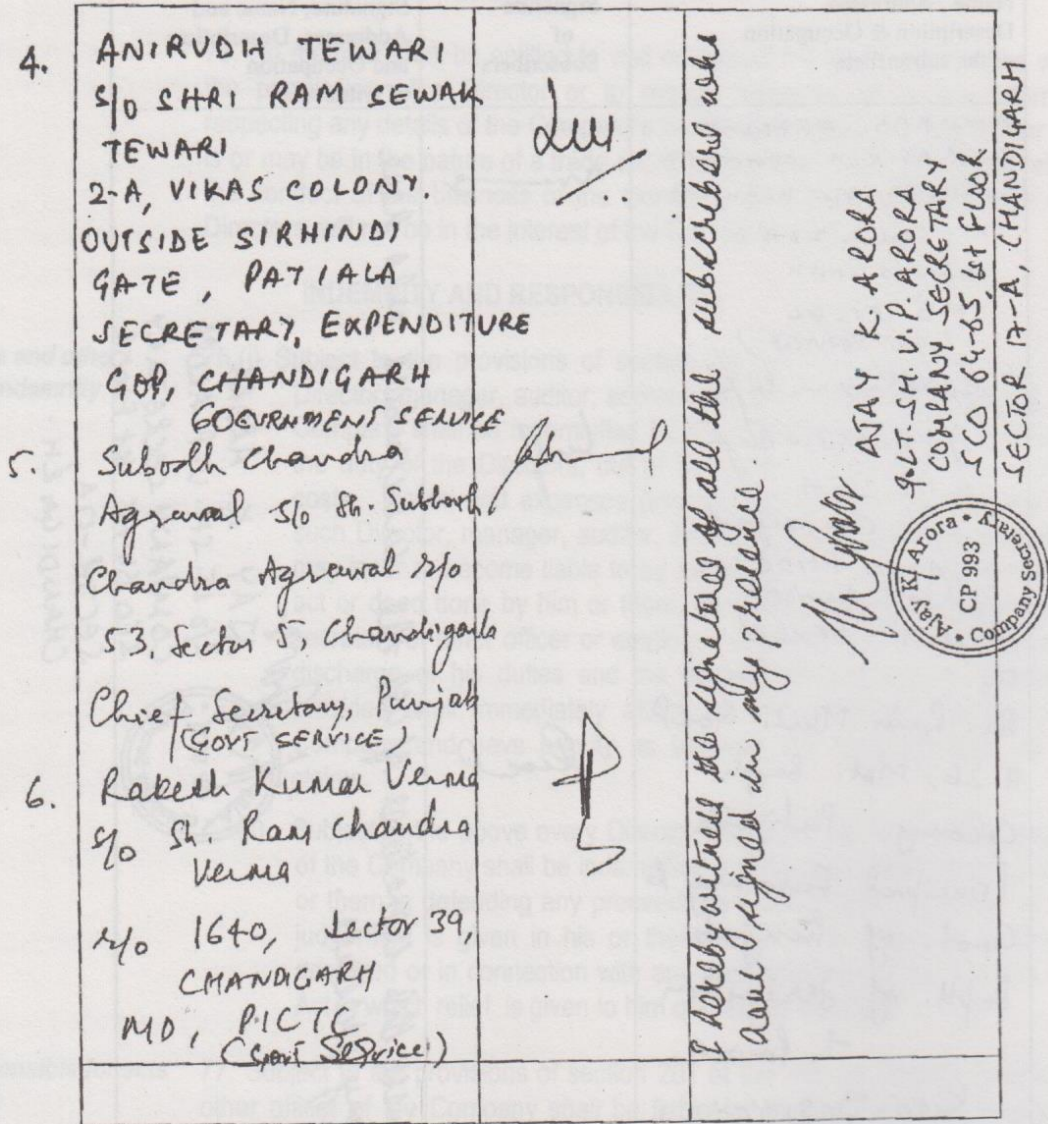 4. ANIRUDH TEWARI
S/O SHRI RAM SEWAK
TEWARI
2-A, VIKAS COLONY,
OUTSIDE SIRHINDI
GATE, PATIALA
SECRETARY, EXPENDITURE
GOP, CHANDIGARH
GOVERNMENT SERVICE
5 Subodh Chandra
Agrawal S/o Sh.
Chandra Agrawal r/o
53, Sector 5, Chandigarh
Chief Secretary, Punjab
(GOVT SERVICE)
6. Rakesh Kumar Verma
S/o Sh. Ram Chandra
Verma
r/o 1640, Sector 39,
CHANDIGARH
MD, PICTC
(Govt Service)
I hereby witness the signatures of all the subscribers who
have signed in my presence
AJAY K. ARORA
LT. SH. V.P. ARORA
COMPANY SECRETARY
SCO 64-65, 1st FLOOR
SECTOR 17-A, CHANDIGARH
Ajay K. Arora • Company Secretary •
CP 993